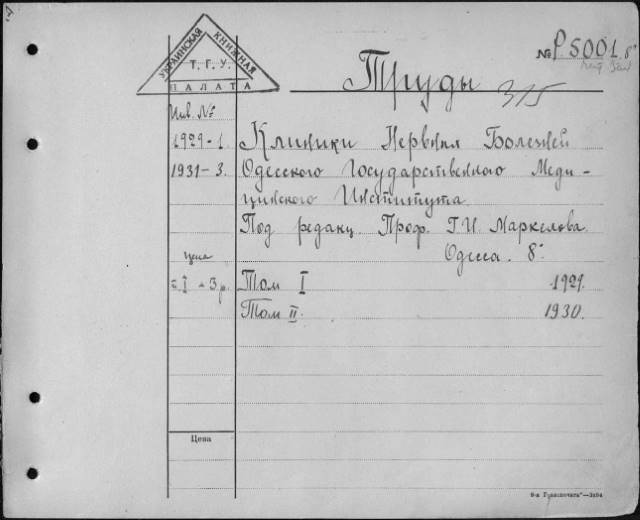 УКРАИНСКАЯ КНИЖНАЯ
Т. Г. У.
ПАЛАТА
№ Р. 5001 8°
Труды 315
Инв. №
1929-1. Клиники Нервных Болезней
1931-3. Одесского Государственного Меди-
цинского Института.
Под редакц. Проф. Г. И. Маркелова.
цена Одесса. 8°
т. I - 3 р. Том I 1929.
Том II. 1930.
Цена